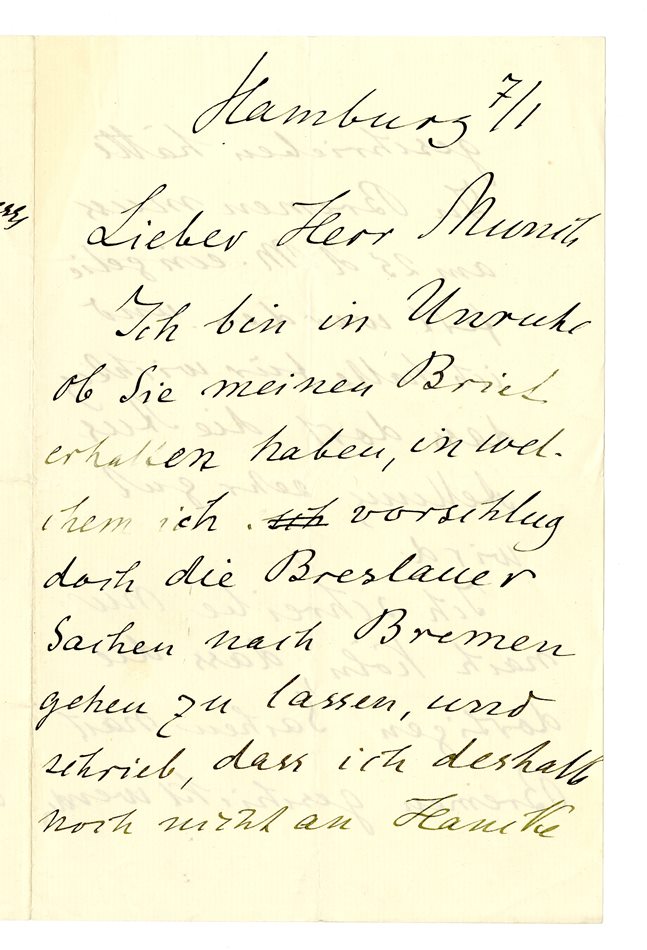 Hamburg 7/1
Lieber Herr Munch
Ich bin in Unruhe
ob Sie meinen Brief
erhalten haben, in wel-
chem ich . ~~ich~~ vorschlug
doch die Breslauer
Sachen nach Bremen
gehen zu lassen, und
schrieb, dass ich deshalb
noch nicht an Hancke